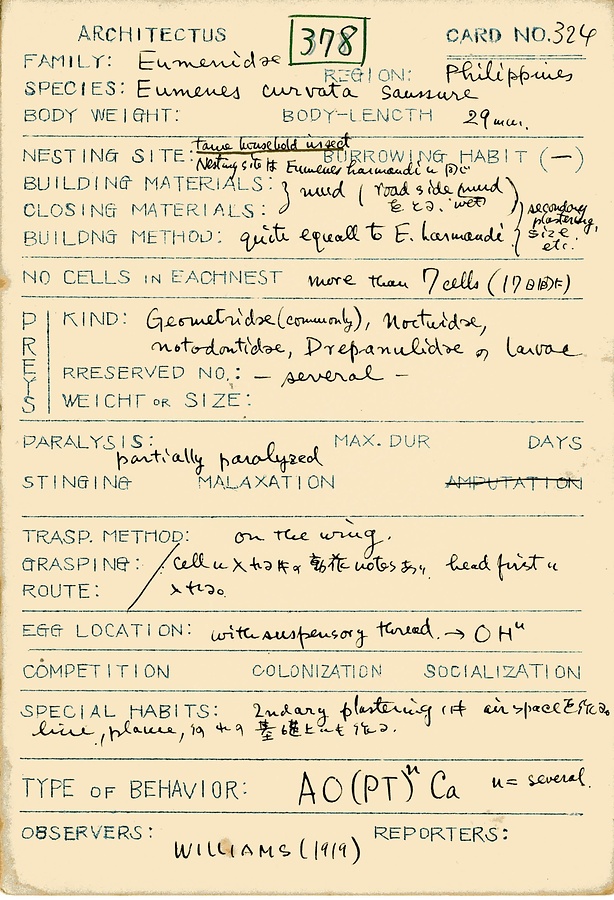 ARCHITECTUS 378 CARD NO. 324
FAMILY: Eumenidae REGION: Philippines
SPECIES: Eumenes curvata Saussure
BODY WEIGHT: BODY-LENGTH 29 mm.
tame household insect
NESTING SITE: Nesting site は Eumenes harmandi に同じ BURROWING HABIT (—)
BUILDING MATERIALS: } mud ( road side mud
CLOSING MATERIALS: をとる. wet )
BUILDNG METHOD: quite equall to E. harmandi { secondary plastering, size etc.
NO CELLS IN EACHNEST more than 7 cells (17日間に)
PREYS KIND: Geometridae (commonly), Noctuidae,
notodontidae, Drepanulidae の larvae
RRESERVED NO.: — several —
WEICHT OR SIZE:
PARALYSIS: MAX. DUR DAYS
partially paralyzed
STINGING MALAXATION AMPUTATION
TRASP. METHOD: on the wing.
GRASPING: cell に notes あり. head first に
ROUTE: 入れる.
EGG LOCATION: with suspensory thread. → OHⁿ
COMPETITION COLONIZATION SOCIALIZATION
SPECIAL HABITS: 2ndary plastering は air space を作る.
line, plane,
TYPE OF BEHAVIOR: AO(PT)ⁿ Ca n = several.
OBSERVERS: REPORTERS:
WILLIAMS (1919)